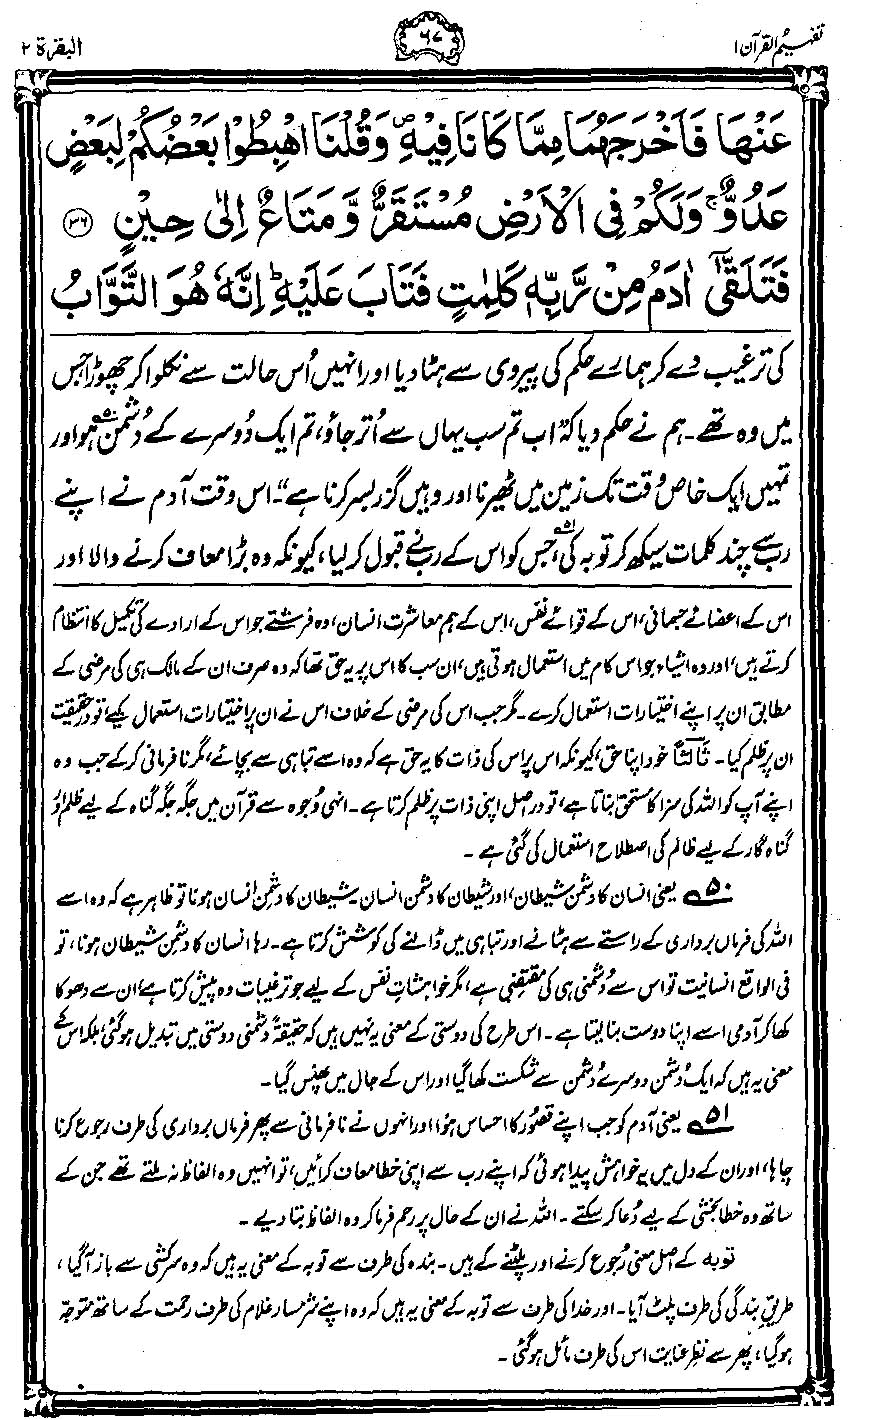 تفہیم القرآن ۱
۶۷
البقرۃ ۲
عَنْهَا فَاَخْرَجَهُمَا مِمَّا كَانَا فِيْهِ ۪ وَقُلْنَا اهْبِطُوْا بَعْضُكُمْ لِبَعْضٍ
عَدُوٌّ ۚ وَلَكُمْ فِى الْاَرْضِ مُسْتَقَرٌّ وَّمَتَاعٌ اِلٰى حِيْنٍ ۝۳۶
فَتَلَقّٰٓى اٰدَمُ مِنْ رَّبِّهٖ كَلِمٰتٍ فَتَابَ عَلَيْهِ ؕ اِنَّهٗ هُوَ التَّوَّابُ
کی ترغیب دے کر ہمارے حکم کی پیروی سے ہٹا دیا اور انہیں اُس حالت سے نکلوا کر چھوڑا جس
میں وہ تھے۔ ہم نے حکم دیا کہ "اب تم سب یہاں سے اُتر جاؤ، تم ایک دُوسرے کے دُشمن۵۰ ہو اور
تمہیں ایک خاص وقت تک زمین میں ٹھیرنا اور وہیں گزر بسر کرنا ہے"۔ اس وقت آدم نے اپنے
رب سے چند کلمات سیکھ کر توبہ کی۵۱، جس کو اس کے رب نے قبول کر لیا، کیونکہ وہ بڑا معاف کرنے والا اور
اس کے اعضائے جسمانی، اس کے قوائے نفس، اس کے ہم معاشرت انسان، وہ فرشتے جو اس کے ارادے کی تکمیل کا انتظام
کرتے ہیں، اور وہ اشیاء جو اس کام میں استعمال ہوتی ہیں، ان سب کا اس پر یہ حق تھا کہ وہ صرف ان کے مالک ہی کی مرضی کے
مطابق ان پر اپنے اختیارات استعمال کرے۔ مگر جب اس کی مرضی کے خلاف اس نے ان پر اختیارات استعمال کیے، تو درحقیقت
ان پر ظلم کیا۔ ثالثاً خود اپنا حق، کیونکہ اس پر اس کی ذات کا یہ حق ہے کہ وہ اسے تباہی سے بچائے، مگر نافرمانی کرکے جب وہ
اپنے آپ کو اللہ کی سزا کا مستحق بناتا ہے، تو دراصل اپنی ذات پر ظلم کرتا ہے۔ انہی وُجوہ سے قرآن میں جگہ جگہ گناہ کے لیے ظلم اور
گناہ گار کے لیے ظالم کی اصطلاح استعمال کی گئی ہے۔
۵۰ یعنی انسان کا دشمن شیطان، اور شیطان کا دشمن انسان۔ شیطان کا دشمنِ انسان ہونا تو ظاہر ہے کہ وہ اسے
اللہ کی فرماں برداری کے راستے سے ہٹانے اور تباہی میں ڈالنے کی کوشش کرتا ہے۔ رہا انسان کا دشمنِ شیطان ہونا، تو
فی الواقع انسانیت تو اس سے دُشمنی ہی کی مقتضی ہے، مگر خواہشاتِ نفس کے لیے جو ترغیبات وہ پیش کرتا ہے، ان سے دھوکا
کھا کر آدمی اسے اپنا دوست بنا لیتا ہے۔ اس طرح کی دوستی کے معنی یہ نہیں ہیں کہ حقیقۃً دشمنی دوستی میں تبدیل ہوگئی، بلکہ اس کے
معنی یہ ہیں کہ ایک دُشمن دوسرے دُشمن سے شکست کھا گیا اور اس کے جال میں پھنس گیا۔
۵۱ یعنی آدم کو جب اپنے قصُور کا احساس ہؤا اور انہوں نے نافرمانی سے پھر فرماں برداری کی طرف رجوع کرنا
چاہا، اور ان کے دل میں یہ خواہش پیدا ہوئی کہ اپنے رب سے اپنی خطا معاف کرائیں، تو انہیں وہ الفاظ نہ ملتے تھے جن کے
ساتھ وہ خطا بخشی کے لیے دُعا کر سکتے۔ اللہ نے ان کے حال پر رحم فرما کر وہ الفاظ بتا دیے۔
توبہ کے اصل معنی رُجوع کرنے اور پلٹنے کے ہیں۔ بندہ کی طرف سے توبہ کے معنی یہ ہیں کہ وہ سرکشی سے باز آگیا،
طریقِ بندگی کی طرف پلٹ آیا۔ اور خدا کی طرف سے توبہ کے معنی یہ ہیں کہ وہ اپنے شرمسار غلام کی طرف رحمت کے ساتھ متوجہ
ہوگیا، پھر سے نظرِ عنایت اس کی طرف مائل ہوگئی۔